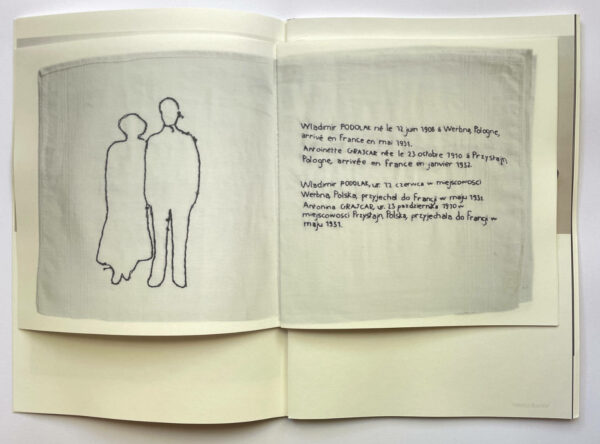 Wladimir PODOLAK né le 12 juin 1908 à Werbna, Pologne,
arrivé en France en mai 1931.
Antoinette GRAJCAR née le 23 octobre 1910 à Przystajn,
Pologne, arrivée en France en janvier 1932.
Wladimir PODOLAK, ur. 12 czerwca w miejscowości
Werbna, Polska, przyjechał do Francji w maju 1931.
Antonina GRAJCAR, ur. 23 października 1910 w
miejscowości Przystajn, Polska, przyjechała do Francji w
maju 1931.